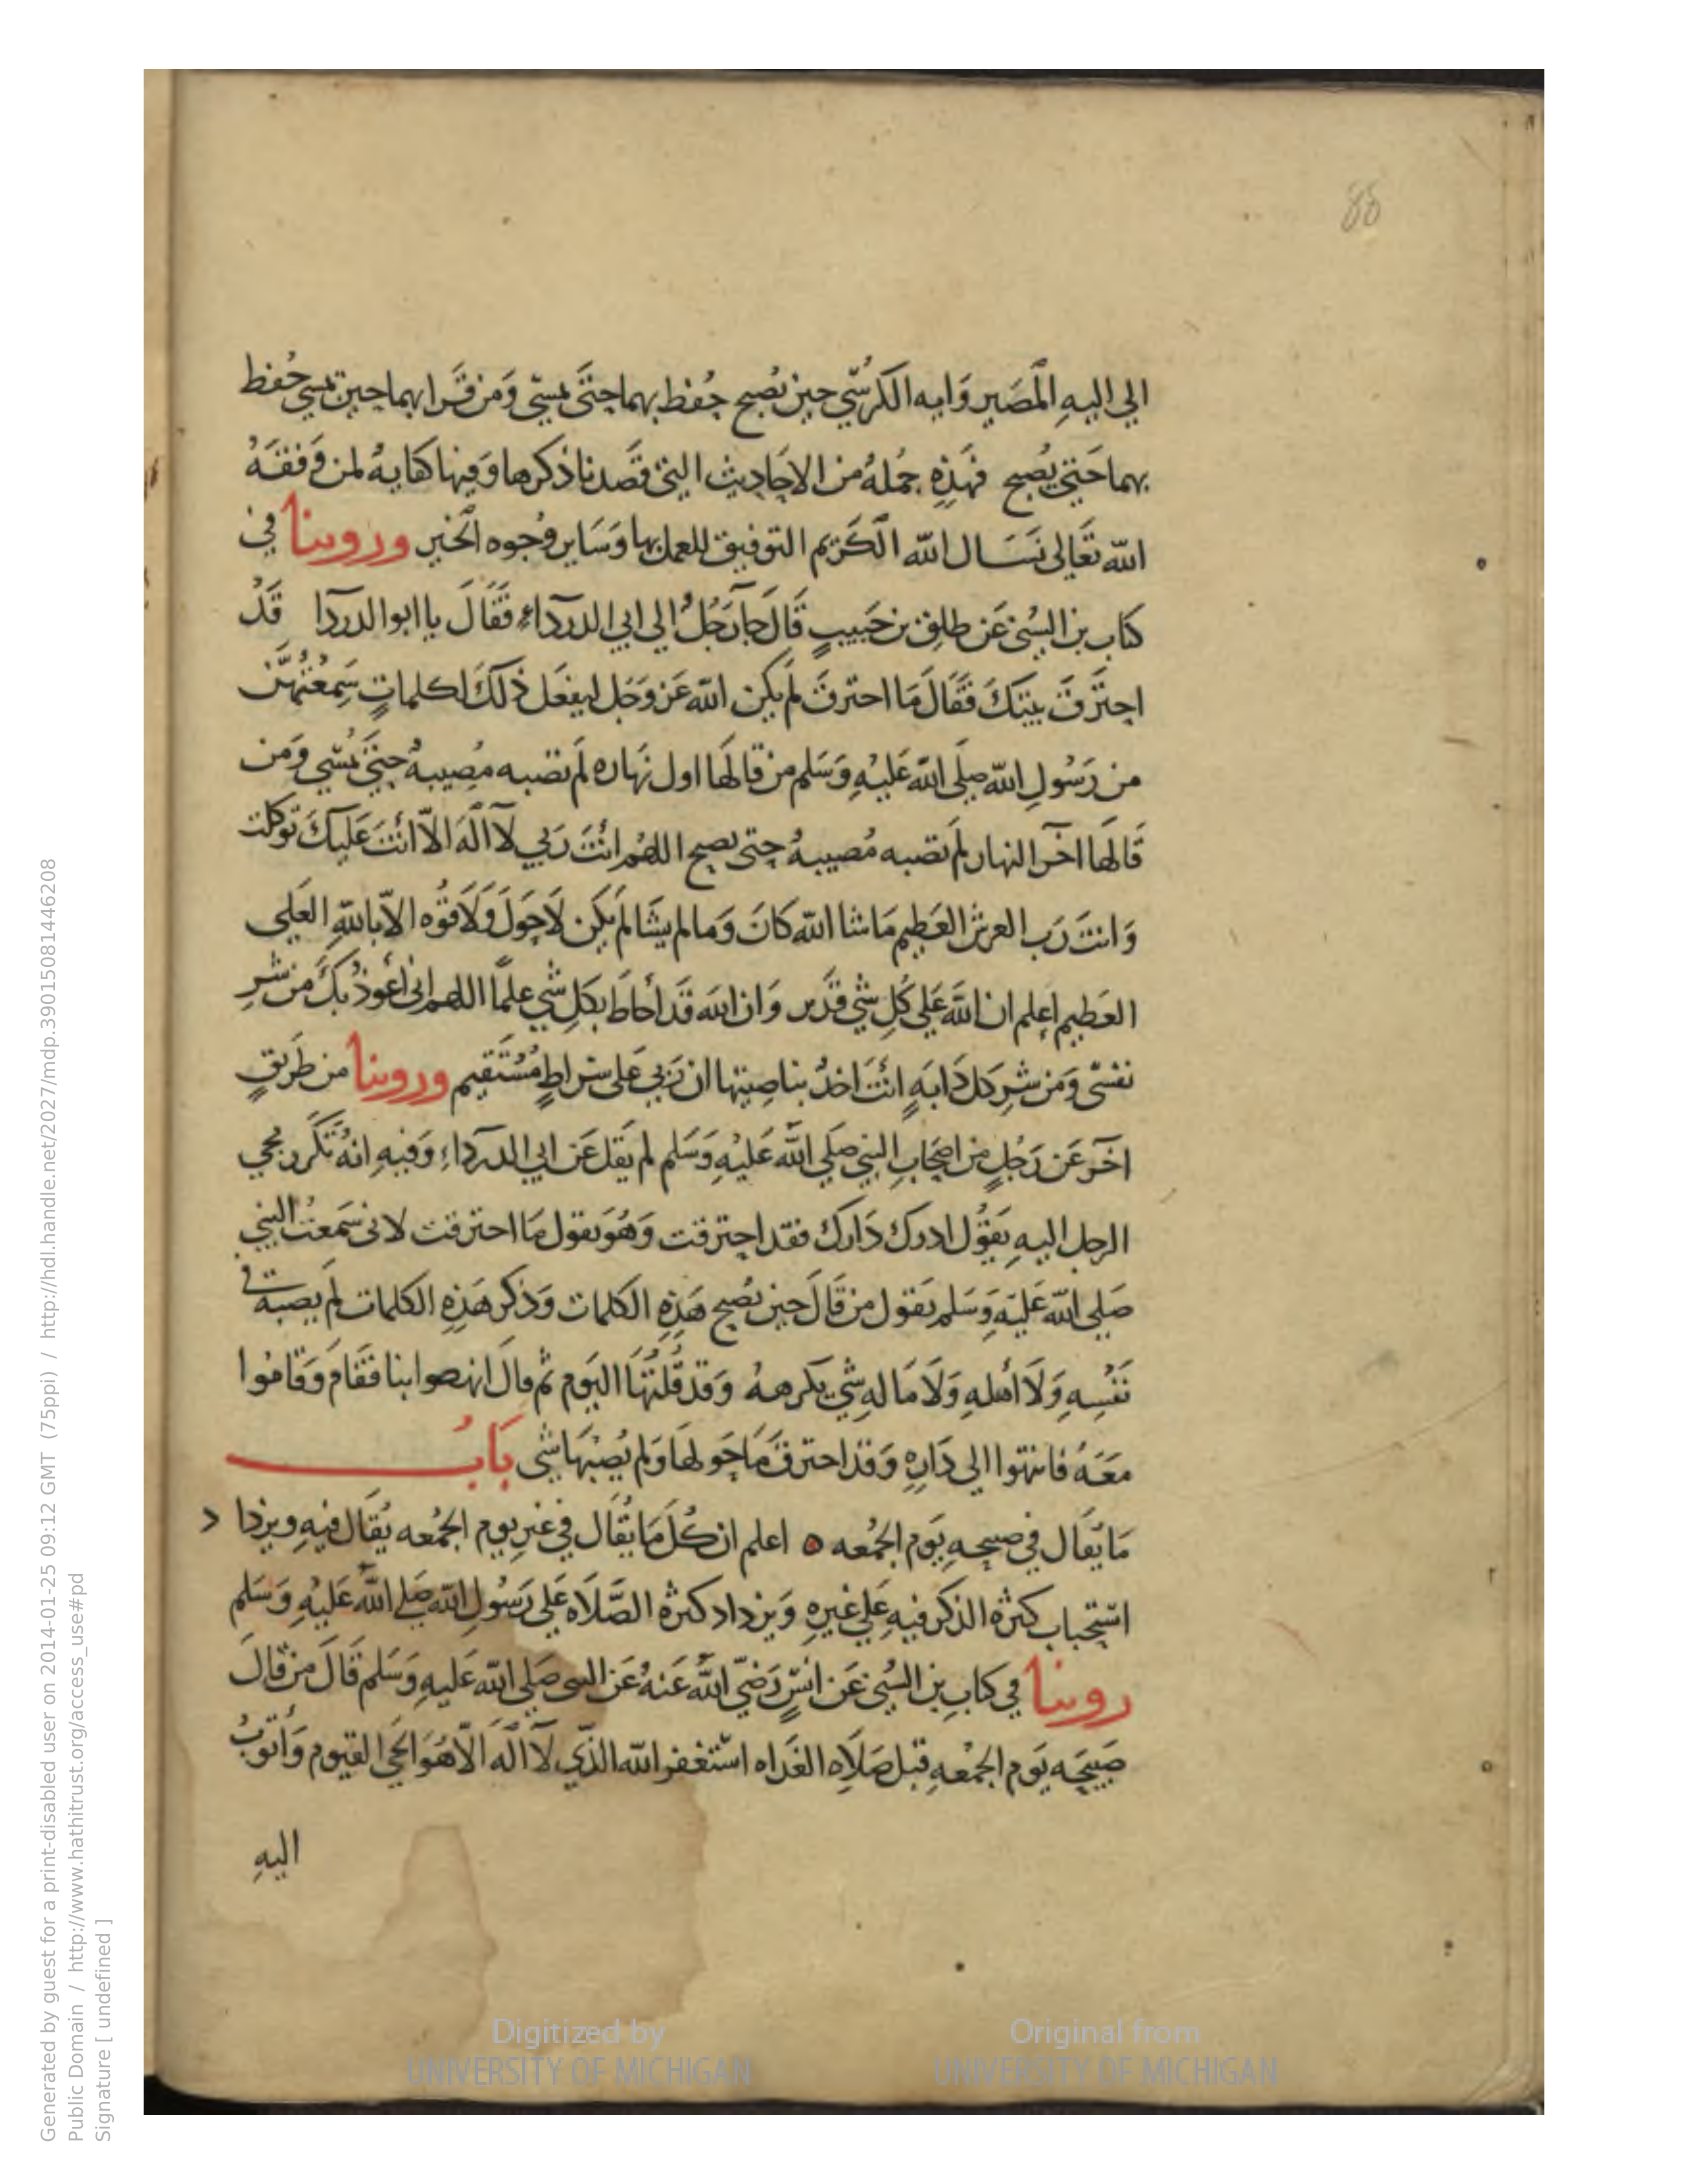 88
الي اليهِ المَصَير وَايه الكرسُّي حين يُصبح حُفظ بهما حتَّى يمسّي وَمن قَرا بهما حين يمسي حُفظ
بهما حَتي يُصبح فهَذِهِ جُملهُ من الاحَاديث التي قصَدنا ذكرها وَفيها كفايهُ لمن وَفقَهُ
الله تعَالى نسَال الله الكَريم التوفيق للعمل بها وَسَاير وجُوه الخَير وروينا في
كتاب بن السُني عَن طلق بن حَبيبٍ قَالَ جآ رَجُلُ الي ابي الدرداءِ فقَالَ يا ابو الدردا قَدُ
احتَرقَ بيتكَ فقَالَ مَا احترقَ لَم يكن الله عَز وَجَل ليفعَل ذلكَ لكلماتٍ سَمِعْتُهنَّ
من رَسُولِ الله صلَى الله عَليهِ وَسَلم من قالهَا اول نهَاره لَم تصبه مُصِيبهُ حتيَ يُمسّي وَمن
قَالهَا اخرَ النهار لَم تصبه مُصيبهُ حتى يصبح اللهُم انتَ رَبي لا الَهَ الاّ انتَ عَليكَ توكلت
وَانتَ رَب العرش العَظيم مَا شا الله كانَ وَمالم يشَا لَم يكن لاَ حَولَ وَلاَ قوُه الاّ باللهِ العَلي
العَظيم اعلم ان اللهَ عَلي كُلِ شي قدَير وَان اللهَ قدَ أحَاطَ بكلِ شي علماً اللهم اني أعوذُ بكَ من شرِ
نفسّي وَمن شرِ كل دَابهٍ انتَ اخذُ بناصِيتها ان رَبي عَلى سراطٍ مُسْتَقيم وروينا من طَريقٍ
اخرَ عَن رَجُلٍ من اصحَابِ النبي صَلي الله عَليهِ وَسَلم لم يقل عَن ابي الدرداءِ وَفيهِ انهُ تكَرر مجي
الرجل اليهِ يَقوُل ادرك دَارك فقد احترقت وَهُو يَقول مَا احترقت لاني سَمعتُ النبي
صَلي الله عَليهِ وَسَلم يقول من قالَ حين يُصبح هَذِهِ الكلمات وَذكر هَذِهِ الكلمات لَم يصبهُ في
نفسِهِ وَلاَ أهلهِ وَلاَ مَالهِ شي يكرههُ وَقد قلتُهَا اليَوم ثم قالَ انهضوا بنا فقَامَ وَقامُوا
معَهُ فانتهوا الى دَارهِ وَقد احترقَ مَا حَولهَا وَلم يُصبْهَا شي بَابُ
مَا يُقَال في صبيحهِ يَوم الجُمعه اعلم ان كُل مَا يقَال في غيرِ يوم الجمُعه يُقَال فيهِ ويزدا د
استحباب كثرهُ الذكر فيهِ عَلي غيرهِ وَيزداد كثرهُ الصَّلاَه عَلي رَسُولِ الله صَلي اللهُ عَليهِ وَسَلم
روينا في كتابِ بن السُني عَن انسٍ رَضيَ اللهُ عَنهُ عَن النبي صَلي الله عَليهِ وَسَلم قَالَ من قالَ
صَبيحَه يَوم الجمُعهِ قبل صَلاَه الغَداه استغفر الله الذّي لاَ الهَ الاّ هَوَ الحَي القيوم وَأتوبُ
اليهِ
Digitized by
UNIVERSITY OF MICHIGAN
Original from
UNIVERSITY OF MICHIGAN
Generated by guest for a print-disabled user on 2014-01-25 09:12 GMT (75ppi) / http://hdl.handle.net/2027/mdp.39015081446208
Public Domain / http://www.hathitrust.org/access_use#pd
Signature [ undefined ]